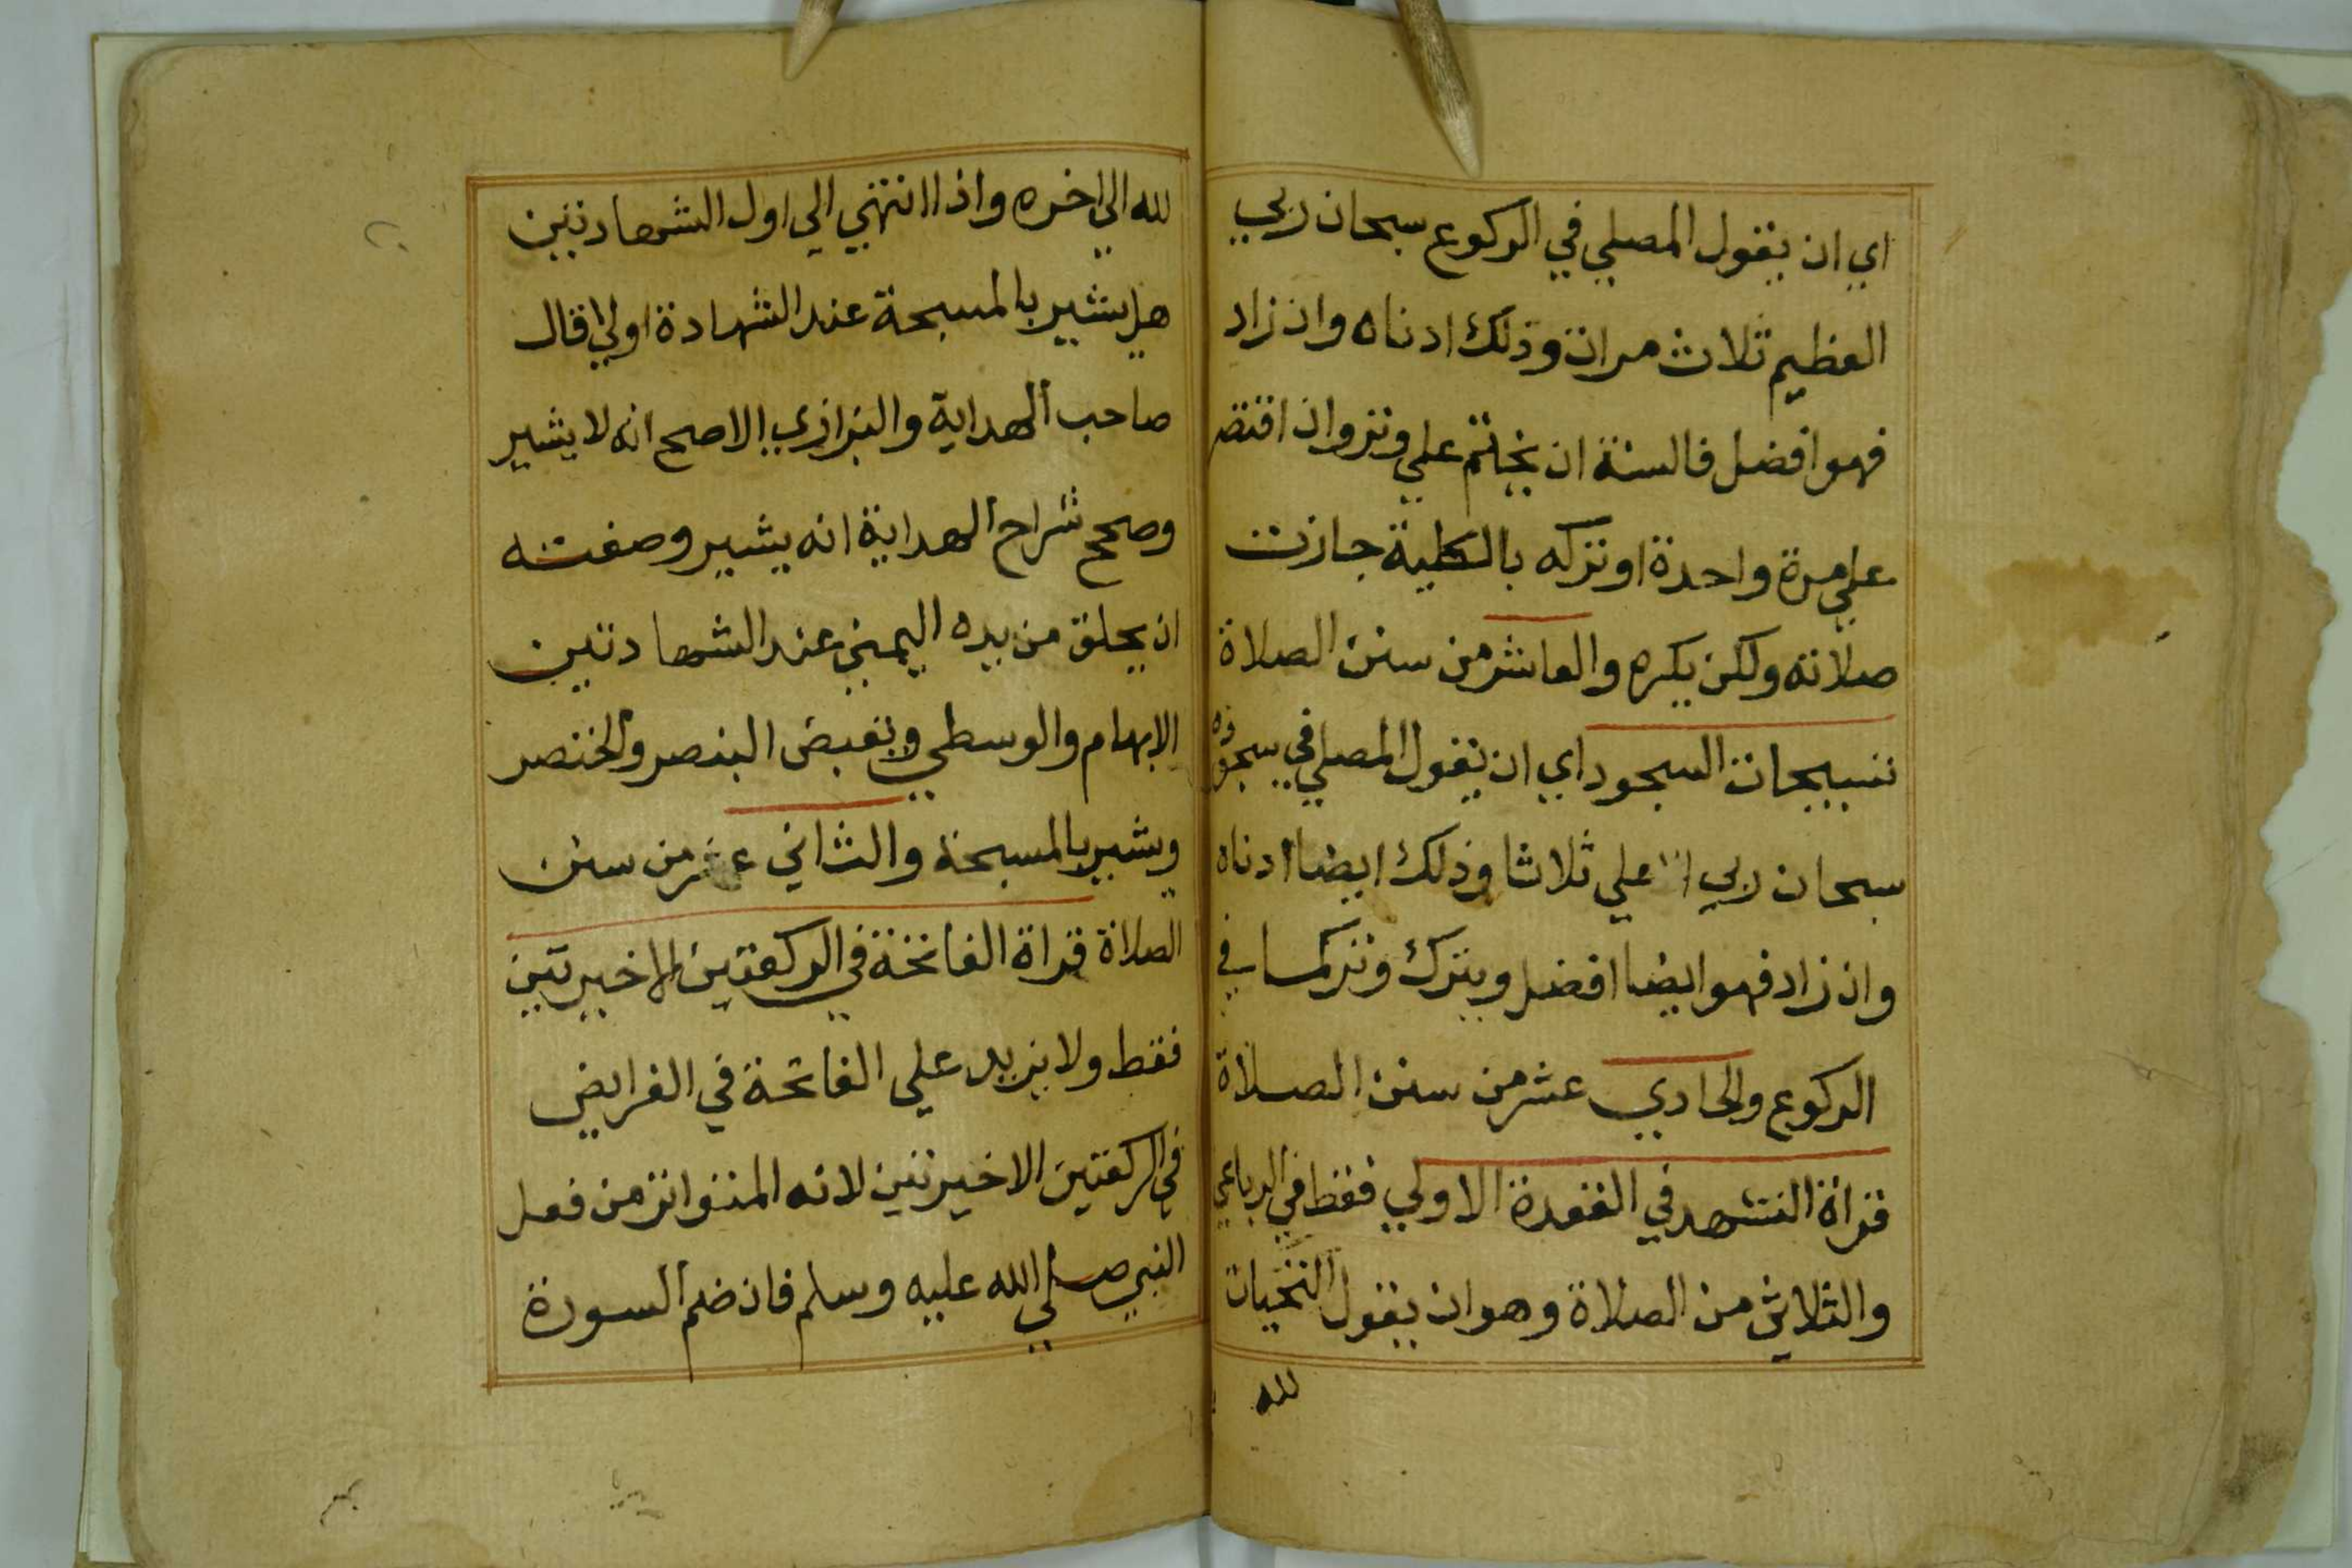 اي ان يقول المصلي في الركوع سبحان ربي
العظيم ثلاث مرات وذلك ادناه وان زاد
فهو افضل فالسنة ان يختم علي وتر وان اقتصر
علي مرة واحدة او تركه بالكلية جازت
صلاته ولكن يكره والعاشر من سنن الصلاة
تسبيحات السجود اي ان يقول المصلي في سجوده
سبحان ربي الاعلي ثلاثا وذلك ايضا ادناه
وان زاد فهو ايضا افضل ويترك وتركما في
الركوع والحادي عشر من سنن الصلاة
قراة التشهد في القعدة الاولي فقط في الرباعي
والثلاثي من الصلاة وهو ان يقول التحيات
لله
لله الي اخره واذا انتهي الي اول الشهادتين
هل يشير بالمسبحة عند الشهادة او لا قال
صاحب الهداية والبزازي الاصح انه لا يشير
وصحح شراح الهداية انه يشير وصفته
ان يحلق من يده اليمني عند الشهادتين
الابهام والوسطي ويقبض البنصر والخنصر
ويشير بالمسبحة والثاني عشر من سنن
الصلاة قراة الفاتحة في الركعتين الاخيرتين
فقط ولا يزيد علي الفاتحة في الفرايض
في الركعتين الاخيرتين لانه المتواتر من فعل
النبي صلي الله عليه وسلم فان ضم السورة